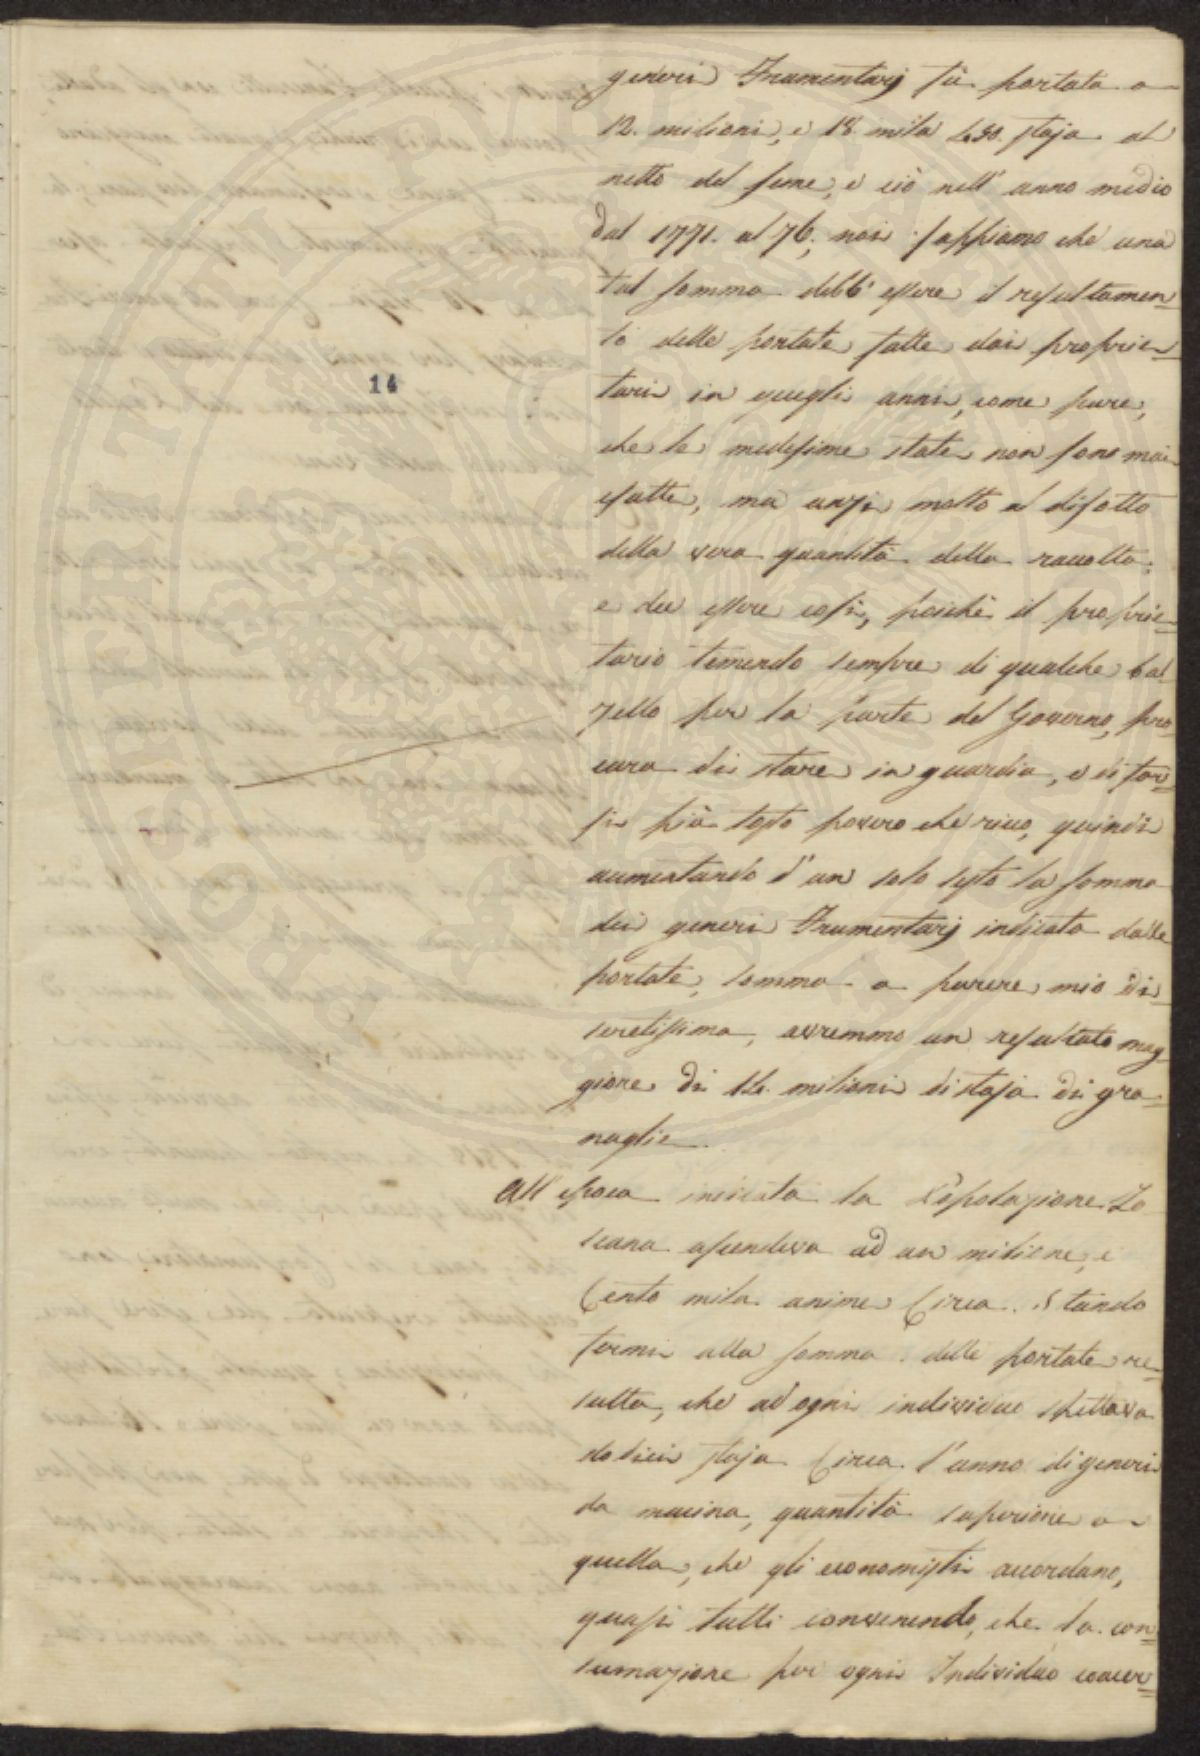 generi Frumentarj fù portata a
12. milioni, e 18. mila 430. staja al
netto del seme, e ciò nell' anno medio
dal 1771. al 76; noi sappiamo che una
tal somma debb' essere il resultamen=
to delle portate fatte dai proprie=
tari in quegli anni, come pure,
che le medesime state non sono mai
esatte, ma anzi molto al disotto
della vera quantità della raccolta;
e dee essere così, poichè il proprie=
tario temendo sempre di qualche bal=
zello per la parte del Governo, pro=
cura di stare in guardia, e di far=
si più tosto povero che ricco, quindi
aumentando d' un solo sesto la somma
dei generi Frumentarj indicata dalle
portate, somma a parere mio di=
scretissima, avremmo un resultato mag=
giore di 14. milioni di staja di gra=
naglie.
All' epoca indicata la Popolazione To=
scana ascendeva ad un milione, e
Cento mila anime Circa. Stando
fermi alla somma delle portate re=
sulta, che ad ogni individuo spettava
dodici staja Circa l' anno di generi
da macina, quantità superiore a
quella, che gli economisti accordano,
quasi tutti convenendo, che la con=
sumazione per ogni Individuo concer=
14
PROSPERITATI PVBLICAE